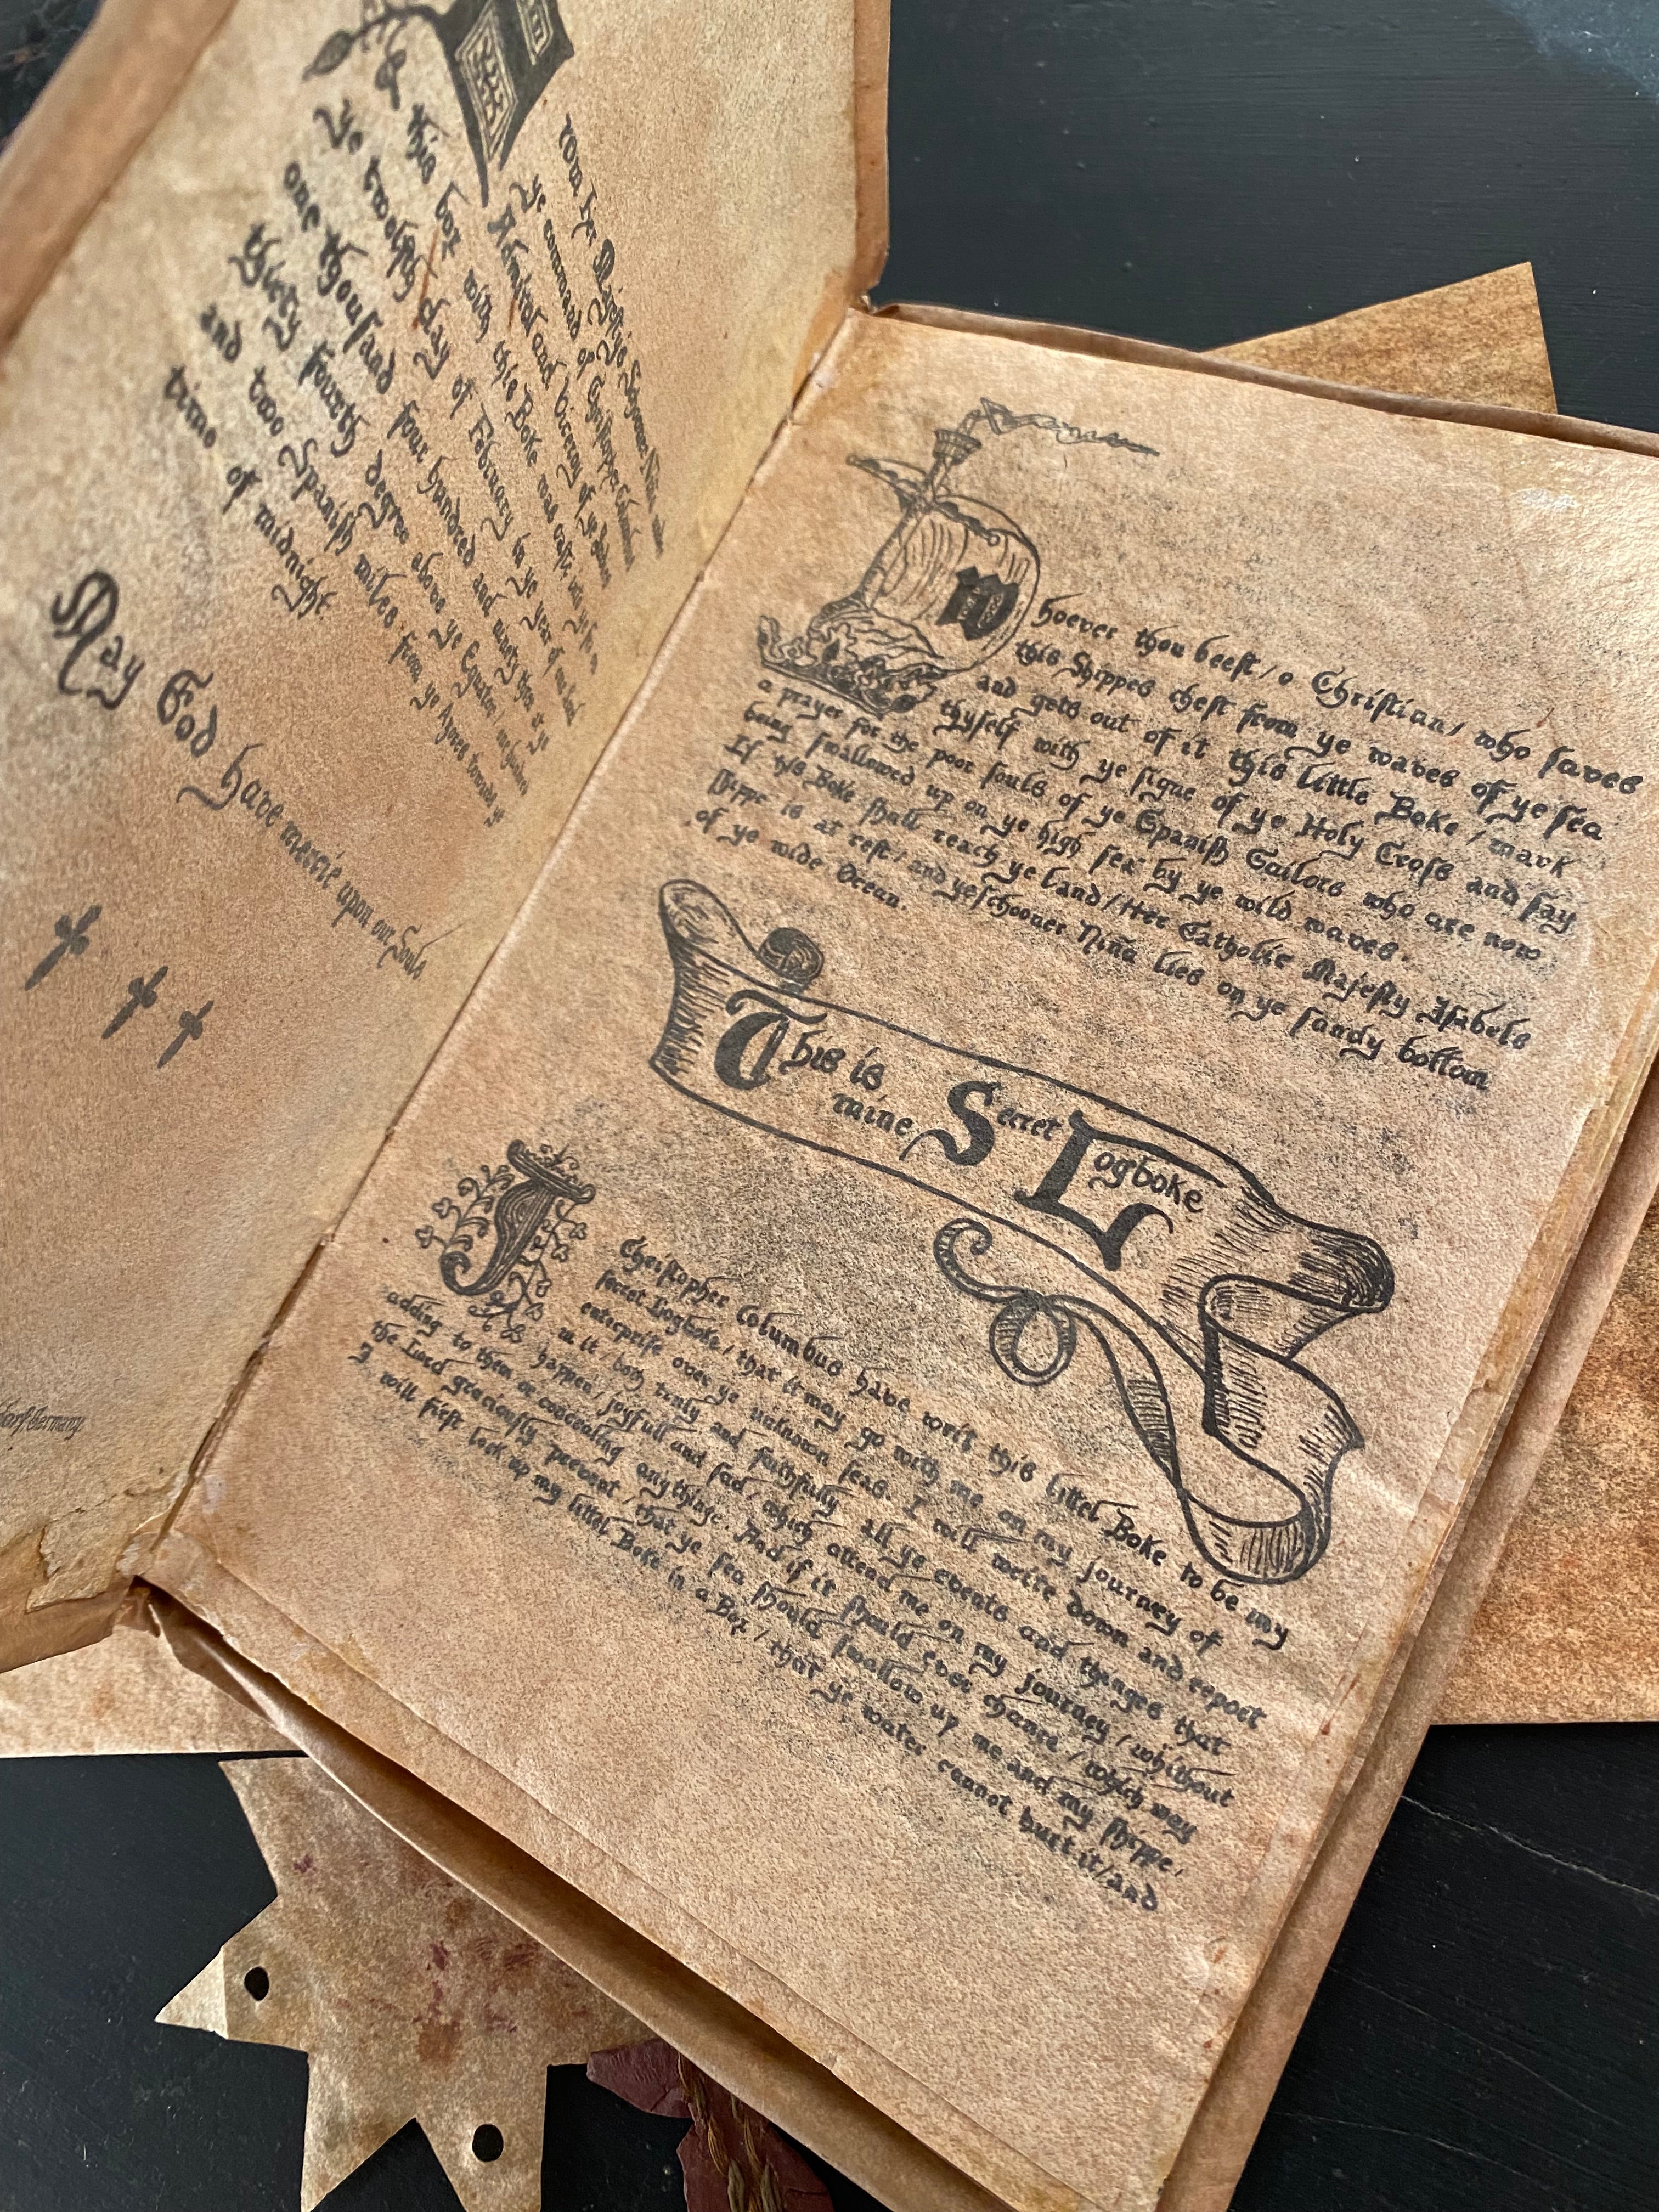 this box with this Boke was
Ye twolfth day of February in ye year of
one thousand four hundred and ninety three
thirty fourth degree above ye Equator
and two Spanish miles from ye Agores towards ye
time of midnight.
May God have mercie upon our Souls
Germany.
Whoever thou beest / o Christian / who saves
this Shippes chest from ye waves of ye sea
and gets out of it this little Boke / mark
thyself with ye signe of ye Holy Cross and say
a prayer for the poor souls of ye Spanish Sailors who are now
being swallowed up on ye high sea by ye wild waves.
If this Boke shall reach ye land / Her Catholic Majesty Isabels
Shippe is at rest / and ye schooner Niña lies on ye sandy bottom
of ye wide Ocean.
This is
mine Secret Logboke
J Christopher Columbus have writ this littel Boke to be my
secret Logboke / that it may go with me on my journey of
enterprise over ye unknown seas. I will write down and report
in it / both truly and faithfully all ye events and thinges that
happen / joyfull and sad / which attend me on my journey / whithout
adding to them or concealing anythinge. And if it should ever chance / which may
the Lord graciously prevent / that ye sea should swallow up me and my shippe,
I will first lock up my littel Boke in a Box / that ye water cannot hurt it / and